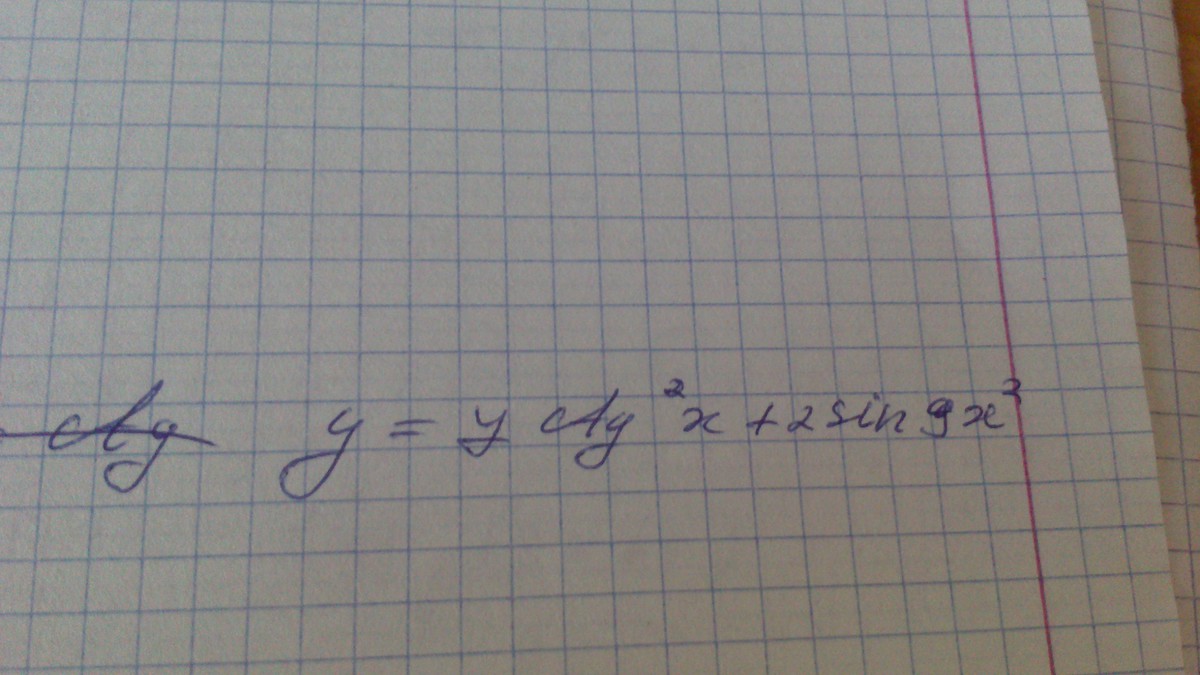 ctg y = y ctg²x + 2 sin 9x²